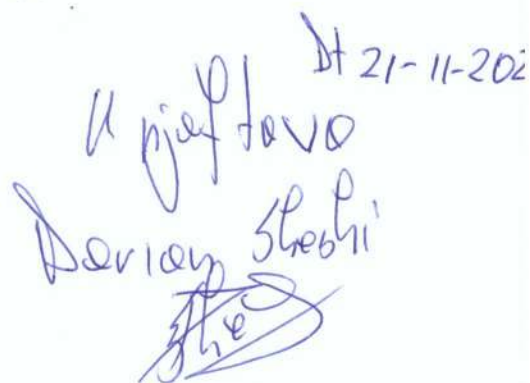 Dt 21-11-202
U njoftova
Dorian Sheshi
She